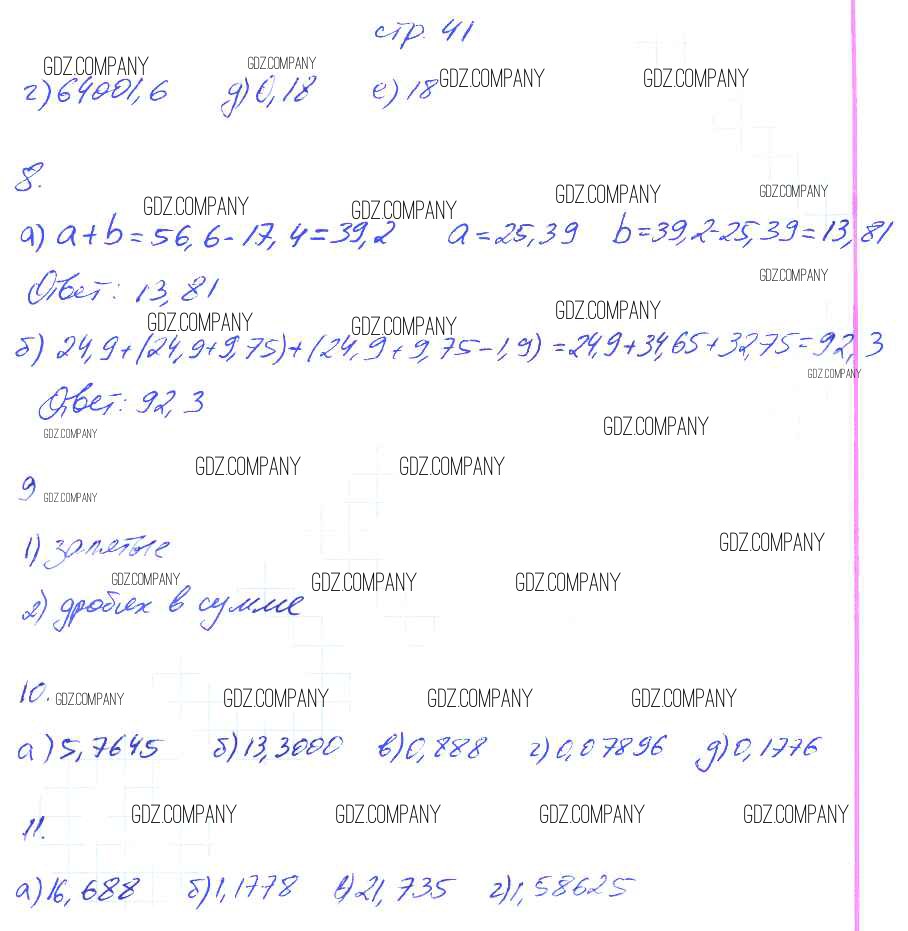 стр. 41
GDZ.COMPANY GDZ.COMPANY GDZ.COMPANY GDZ.COMPANY
г) 64001,6 д) 0,18 е) 18
8.
GDZ.COMPANY GDZ.COMPANY GDZ.COMPANY GDZ.COMPANY
а) a+b=56,6-17,4=39,2 a=25,39 b=39,2-25,39=13,81
GDZ.COMPANY
Ответ: 13,81
GDZ.COMPANY GDZ.COMPANY GDZ.COMPANY
б) 24,9+(24,9+9,75)+(24,9+9,75-1,9)=24,9+34,65+32,75=92,3
GDZ.COMPANY
Ответ: 92,3
GDZ.COMPANY GDZ.COMPANY
GDZ.COMPANY GDZ.COMPANY
9 GDZ.COMPANY
1) запятые
GDZ.COMPANY
GDZ.COMPANY GDZ.COMPANY GDZ.COMPANY
2) дробях в сумме
10. GDZ.COMPANY GDZ.COMPANY GDZ.COMPANY GDZ.COMPANY
а) 5,7645 б) 13,3000 в) 0,888 г) 0,07896 д) 0,1776
GDZ.COMPANY GDZ.COMPANY GDZ.COMPANY GDZ.COMPANY
11.
а) 16,688 б) 1,1778 в) 21,735 г) 1,58625